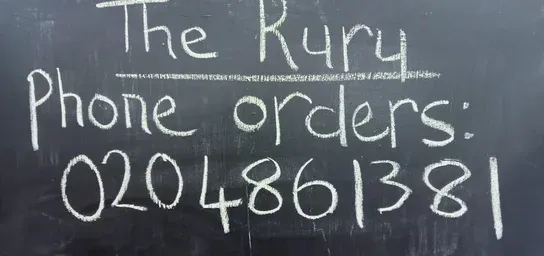 The Rury
Phone orders:
0204861381